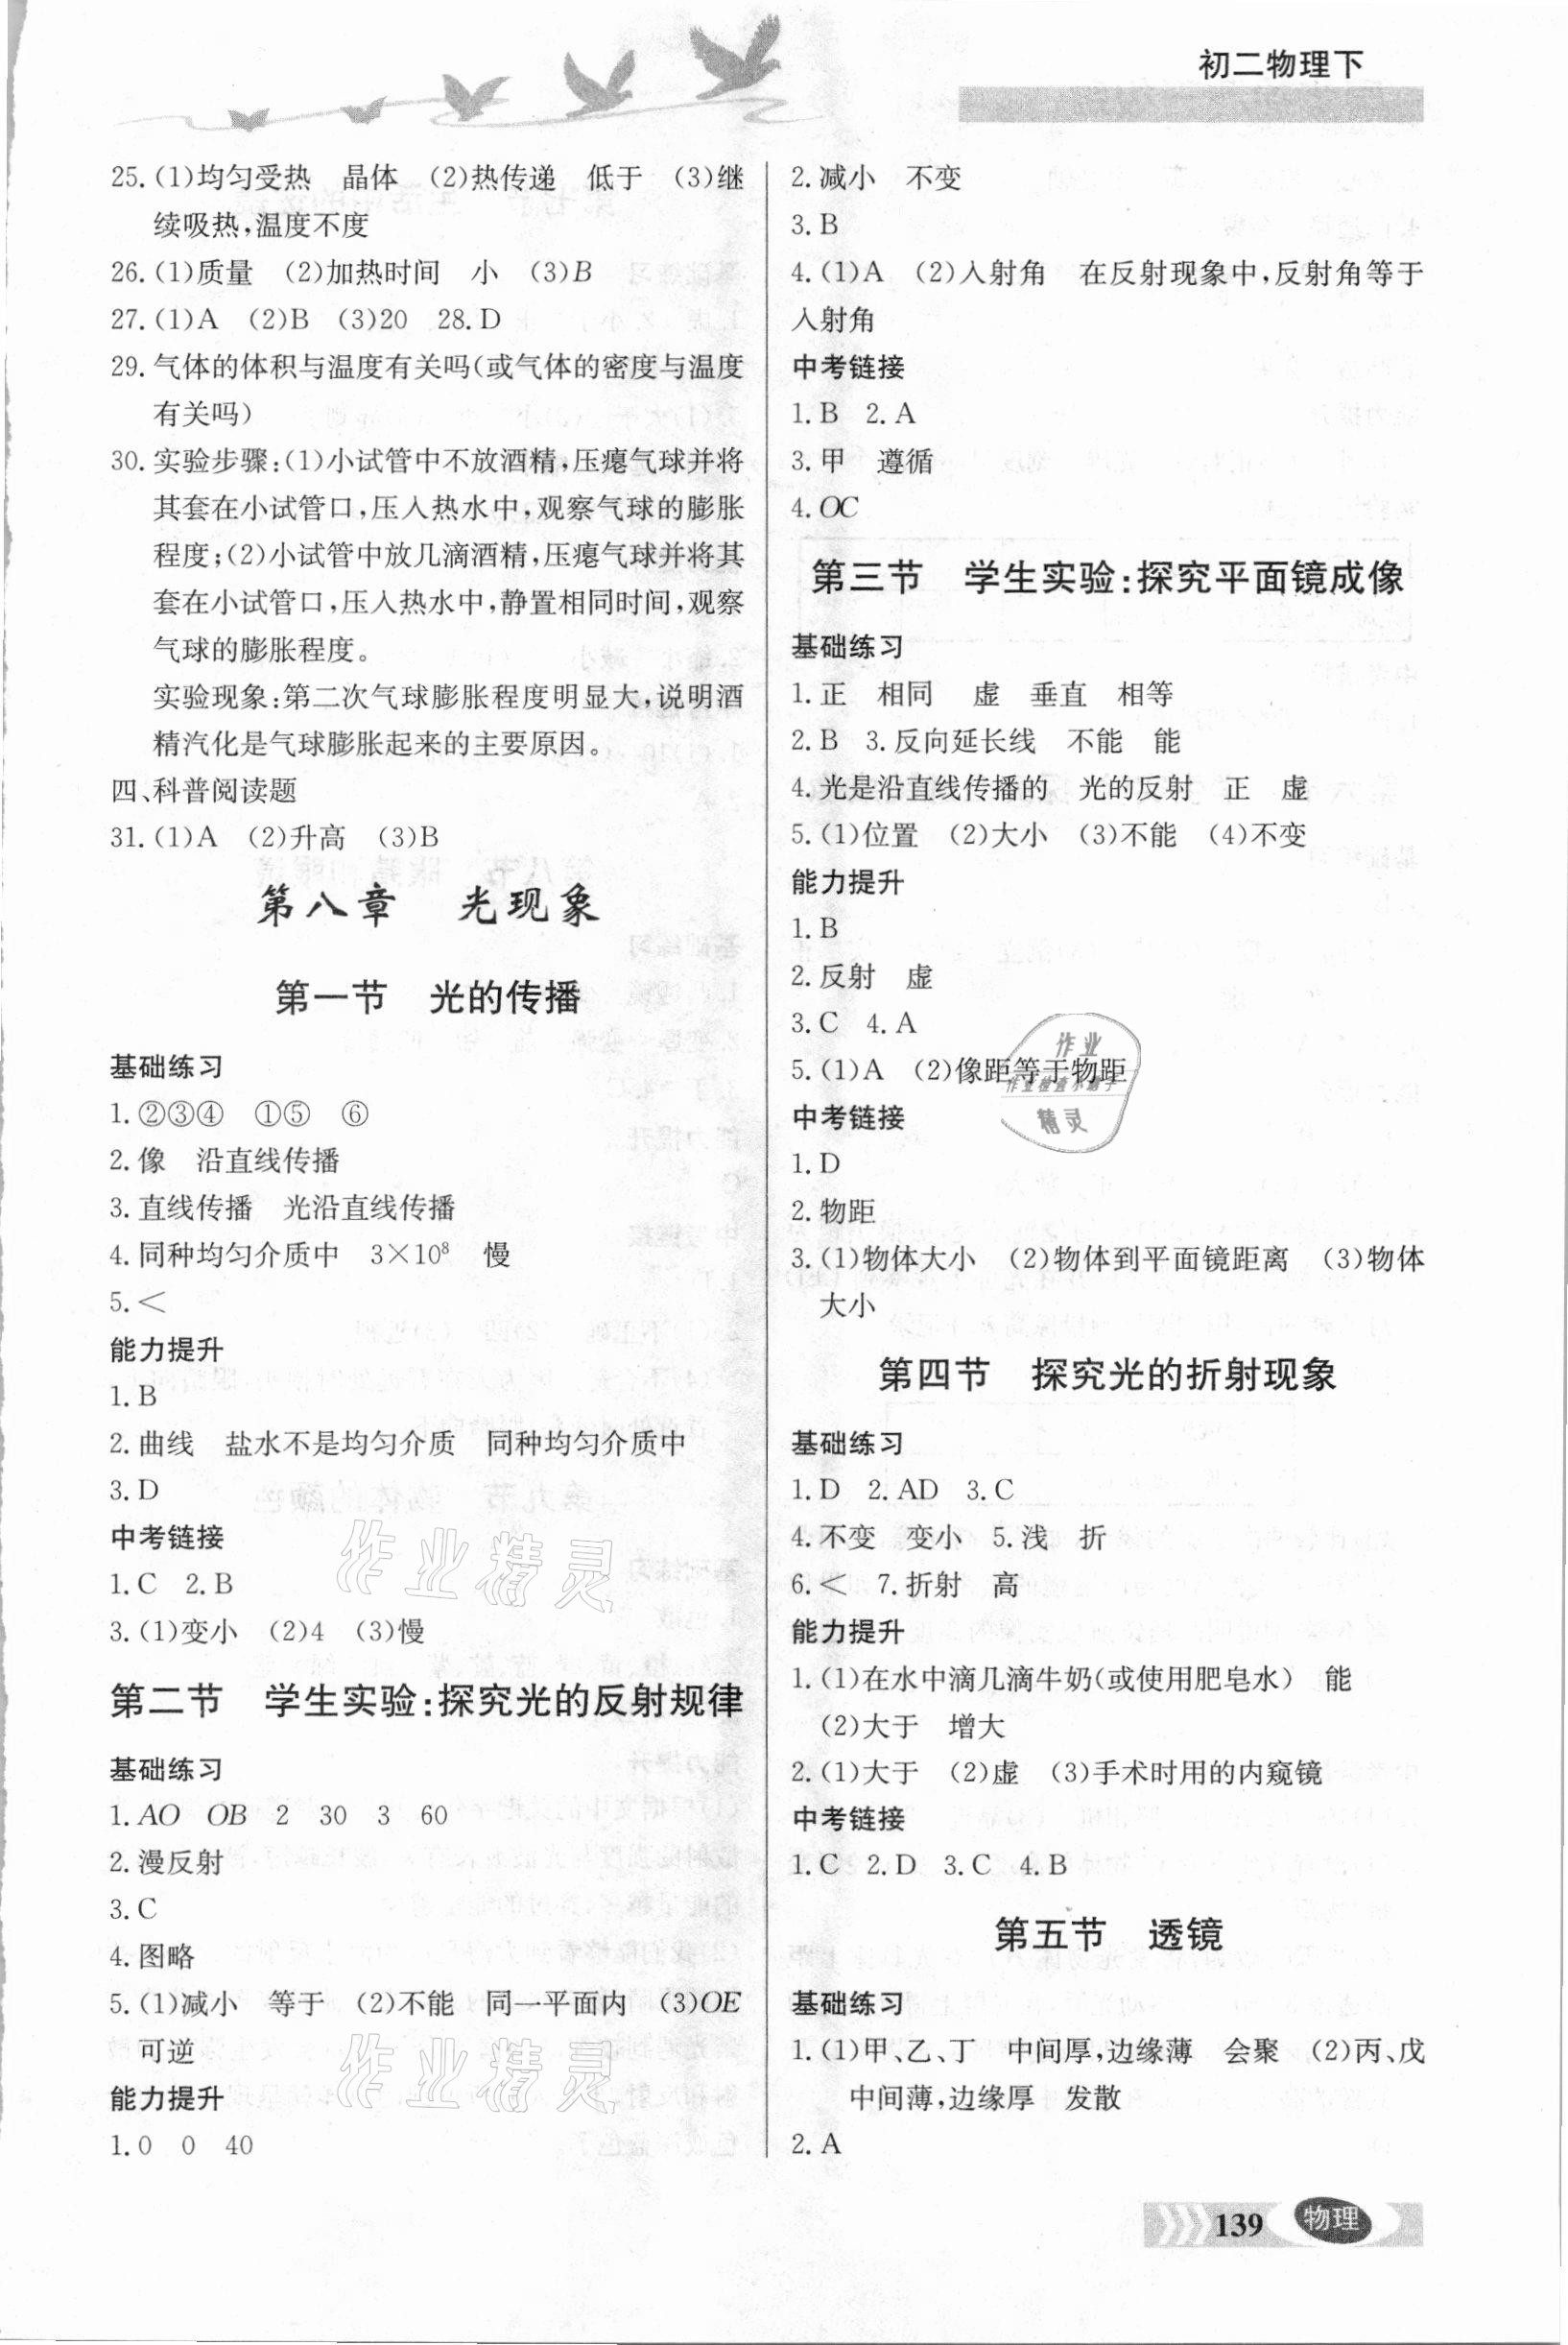 初二物理下
25.(1)均匀受热 晶体 (2)热传递 低于 (3)继
续吸热,温度不度
26.(1)质量 (2)加热时间 小 (3)B
27.(1)A (2)B (3)20 28.D
29.气体的体积与温度有关吗(或气体的密度与温度
有关吗)
30.实验步骤:(1)小试管中不放酒精,压瘪气球并将
其套在小试管口,压入热水中,观察气球的膨胀
程度;(2)小试管中放几滴酒精,压瘪气球并将其
套在小试管口,压入热水中,静置相同时间,观察
气球的膨胀程度。
实验现象:第二次气球膨胀程度明显大,说明酒
精汽化是气球膨胀起来的主要原因。
四、科普阅读题
31.(1)A (2)升高 (3)B
第八章 光现象
第一节 光的传播
基础练习
1.②③④ ①⑤ ⑥
2.像 沿直线传播
3.直线传播 光沿直线传播
4.同种均匀介质中 3×10⁸ 慢
5.<
能力提升
1.B
2.曲线 盐水不是均匀介质 同种均匀介质中
3.D
中考链接
1.C 2.B
3.(1)变小 (2)4 (3)慢
第二节 学生实验:探究光的反射规律
基础练习
1.AO OB 2 30 3 60
2.漫反射
3.C
4.图略
5.(1)减小 等于 (2)不能 同一平面内 (3)OE
可逆
能力提升
1.0 0 40
2.减小 不变
3.B
4.(1)A (2)入射角 在反射现象中,反射角等于
入射角
中考链接
1.B 2.A
3.甲 遵循
4.OC
第三节 学生实验:探究平面镜成像
基础练习
1.正 相同 虚 垂直 相等
2.B 3.反向延长线 不能 能
4.光是沿直线传播的 光的反射 正 虚
5.(1)位置 (2)大小 (3)不能 (4)不变
能力提升
1.B
2.反射 虚
3.C 4.A
5.(1)A (2)像距等于物距
中考链接
1.D
2.物距
3.(1)物体大小 (2)物体到平面镜距离 (3)物体
大小
第四节 探究光的折射现象
基础练习
1.D 2.AD 3.C
4.不变 变小 5.浅 折
6.< 7.折射 高
能力提升
1.(1)在水中滴几滴牛奶(或使用肥皂水) 能
(2)大于 增大
2.(1)大于 (2)虚 (3)手术时用的内窥镜
中考链接
1.C 2.D 3.C 4.B
第五节 透镜
基础练习
1.(1)甲、乙、丁 中间厚,边缘薄 会聚 (2)丙、戊
中间薄,边缘厚 发散
2.A
作业
作业检查小助手
精灵
作业精灵
作业精灵
139 物理